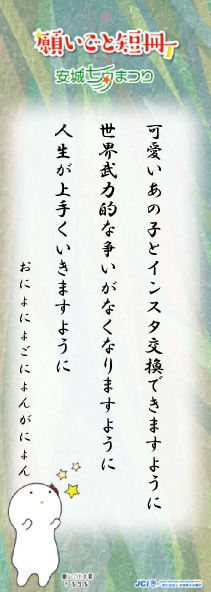 願いごと短冊
安城七夕まつり
可愛いあの子とインスタ交換できますように
世界武力的な争いがなくなりますように
人生が上手くいきますように
おにょにょごにょんがにょん
JCI